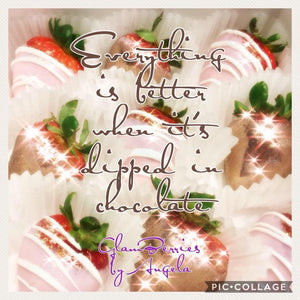 Everything
is better
when it's
dipped in
chocolate
GlamBerries
by Angela
PIC•COLLAGE